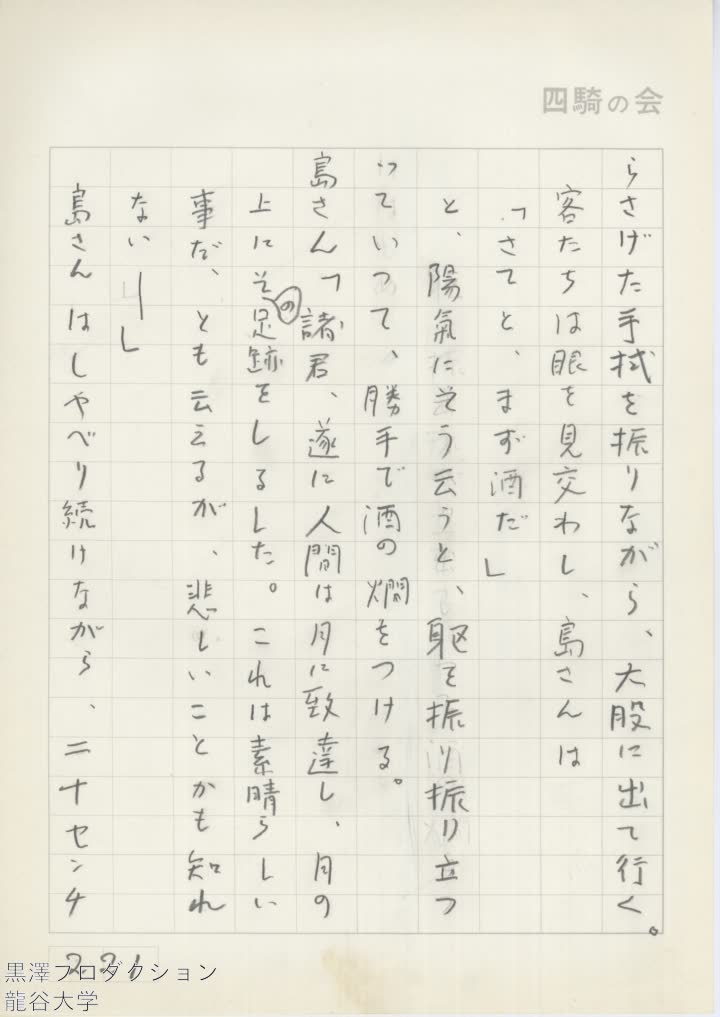 四騎の会
らさげた手拭を振りながら、大股に出て行く。
客たちは眼を見交わし、島さんは
「さてと、まず酒だ」
と、陽氣にそう云うと、躯を振り振り立つ
っていって、勝手で酒の燗をつける。
島さん「諸君、遂に人間は月に致達し、月の
上にその足跡をしるした。これは素晴らしい
事だ、とも云えるが、悲しいことかも知れ
ない―」
島さんはしやべり続けながら、二十センチ
221
黒澤プロダクション
龍谷大学